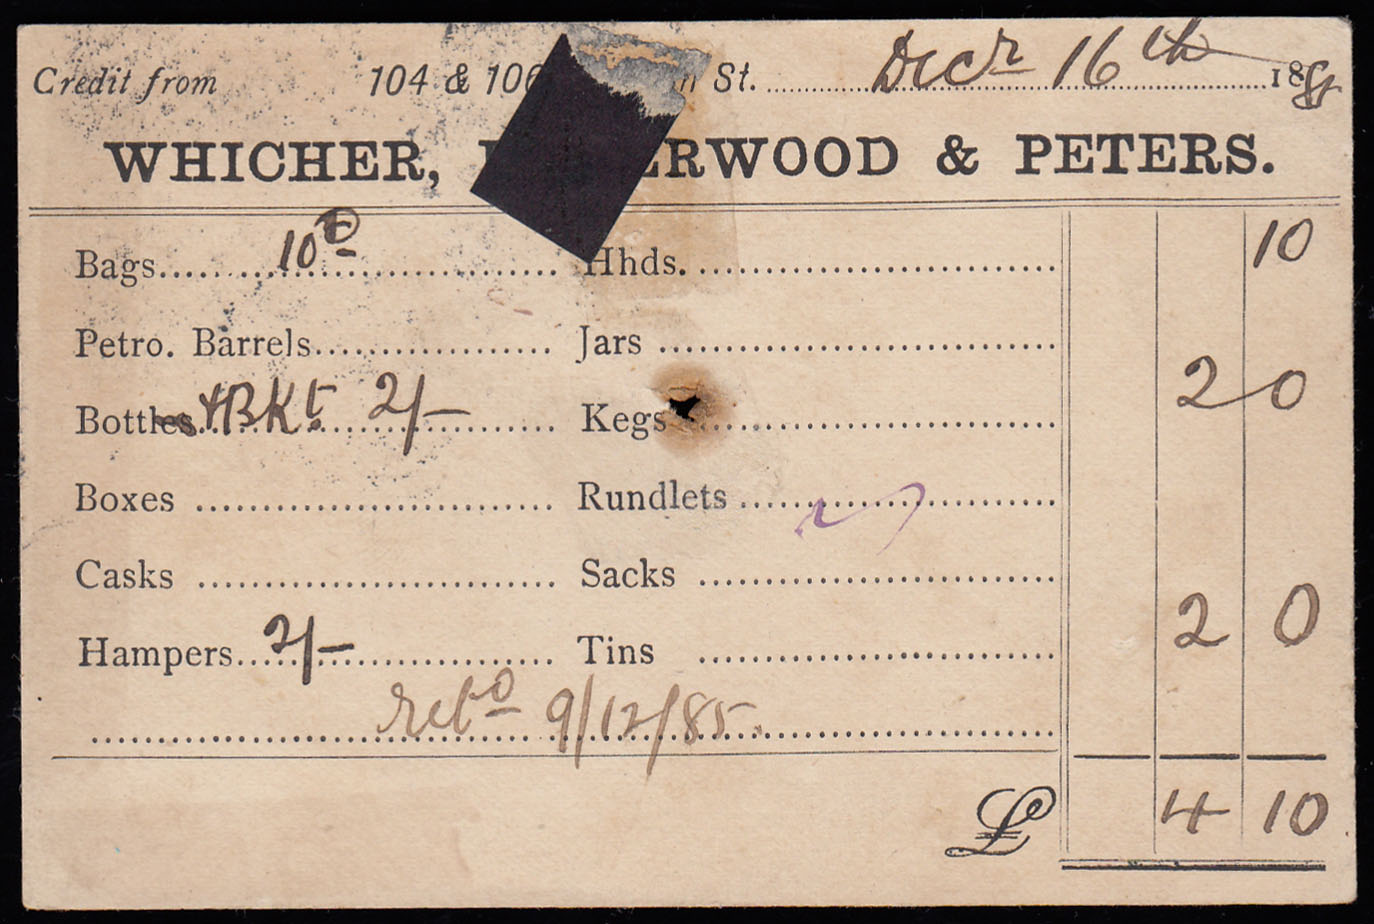 Credit from 104 & 106 St. Decr 16th 188
WHICHER, ERWOOD & PETERS.
Bags 10 Hhds. 10
Petro. Barrels Jars
Bottles 1 BKt. 2/- Kegs 2 0
Boxes Rundlets
Casks Sacks
Hampers 2/- Tins 2 0
9/12/85
£ 4 10